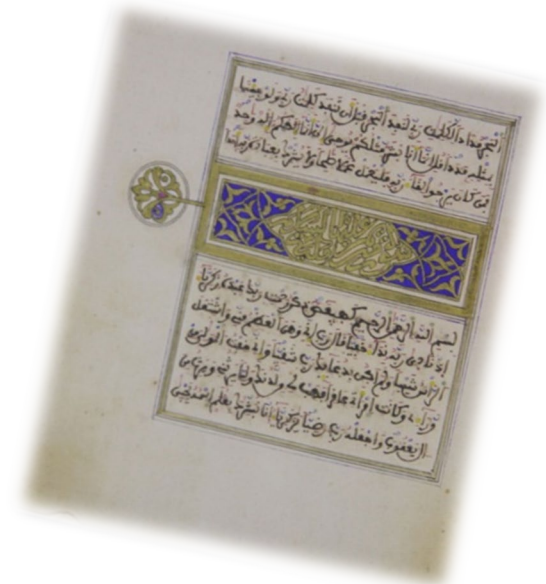 البحر مدادا لكلمت ربي لنفد البحر قبل أن تنفد كلمت ربي ولو جئنا
بمثله مددا قل إنما أنا بشر مثلكم يوحى إلي أنما إلهكم إله وحد
فمن كان يرجوا لقاء ربه فليعمل عملا صلحا ولا يشرك بعبادة ربه أحدا
بسم الله الرحمن الرحيم كهيعص ذكر رحمت ربك عبده زكرياء
إذ نادى ربه نداء خفيا قال رب إني وهن العظم مني واشتعل
الرأس شيبا ولم أكن بدعائك رب شقيا وإني خفت الموالي من
وراءي وكانت امرأتي عاقرا فهب لي من لدنك وليا يرثني ويرث من
ءال يعقوب واجعله رب رضيا يزكرياء إنا نبشرك بغلم اسمه يحيى